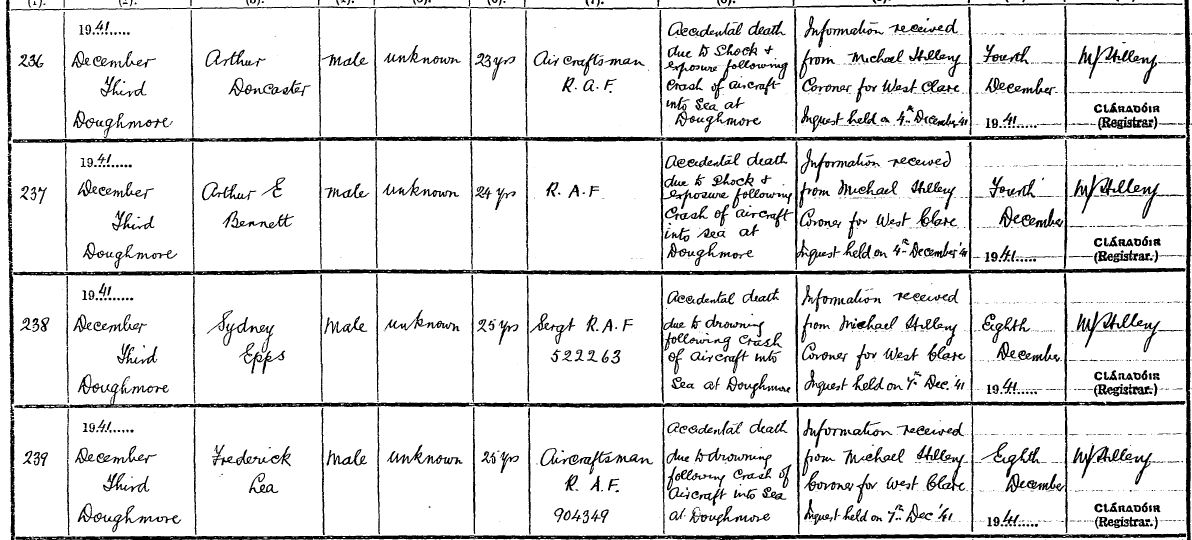 (1). (2). (3). (4). (5). (6). (7). (8).
236
1941......
December
Third
Doughmore
Arthur
Doncaster
Male
unknown
23 yrs
Aircraftsman
R.A.F.
Accidental death
due to Shock &
exposure following
Crash of aircraft
into Sea at
Doughmore
Information received
from Michael Hilleny
Coroner for West Clare
Inquest held on 4th December '41
Fourth
December
1941.....
M Hilleny
CLÁRADÓIR
(Registrar)
237
1941......
December
Third
Doughmore
Arthur E
Bennett
Male
unknown
24 yrs
R.A.F.
Accidental death
due to Shock &
exposure following
Crash of aircraft
into sea at
Doughmore
Information received
from Michael Hilleny
Coroner for West Clare
Inquest held on 4th December '41
Fourth
December
1941.....
M Hilleny
CLÁRADÓIR
(Registrar.)
238
1941......
December
Third
Doughmore
Sydney
Epps
Male
unknown
25 yrs
Sergt R.A.F
522263
Accidental death
due to drowning
following Crash
of Aircraft into
Sea at Doughmore
Information received
from Michael Hilleny
Coroner for West Clare
Inquest held on 7th Dec. '41
Eighth
December
1941.....
M Hilleny
CLÁRADÓIR
(Registrar.)
239
1941......
December
Third
Doughmore
Frederick
Lea
Male
unknown
25 yrs
Aircraftsman
R.A.F.
904349
Accidental death
due to drowning
following Crash of
Aircraft into Sea
at Doughmore
Information received
from Michael Hilleny
Coroner for West Clare
Inquest held on 7th Dec '41
Eighth
December
1941.....
M Hilleny
CLÁRADÓIR
(Registrar.)